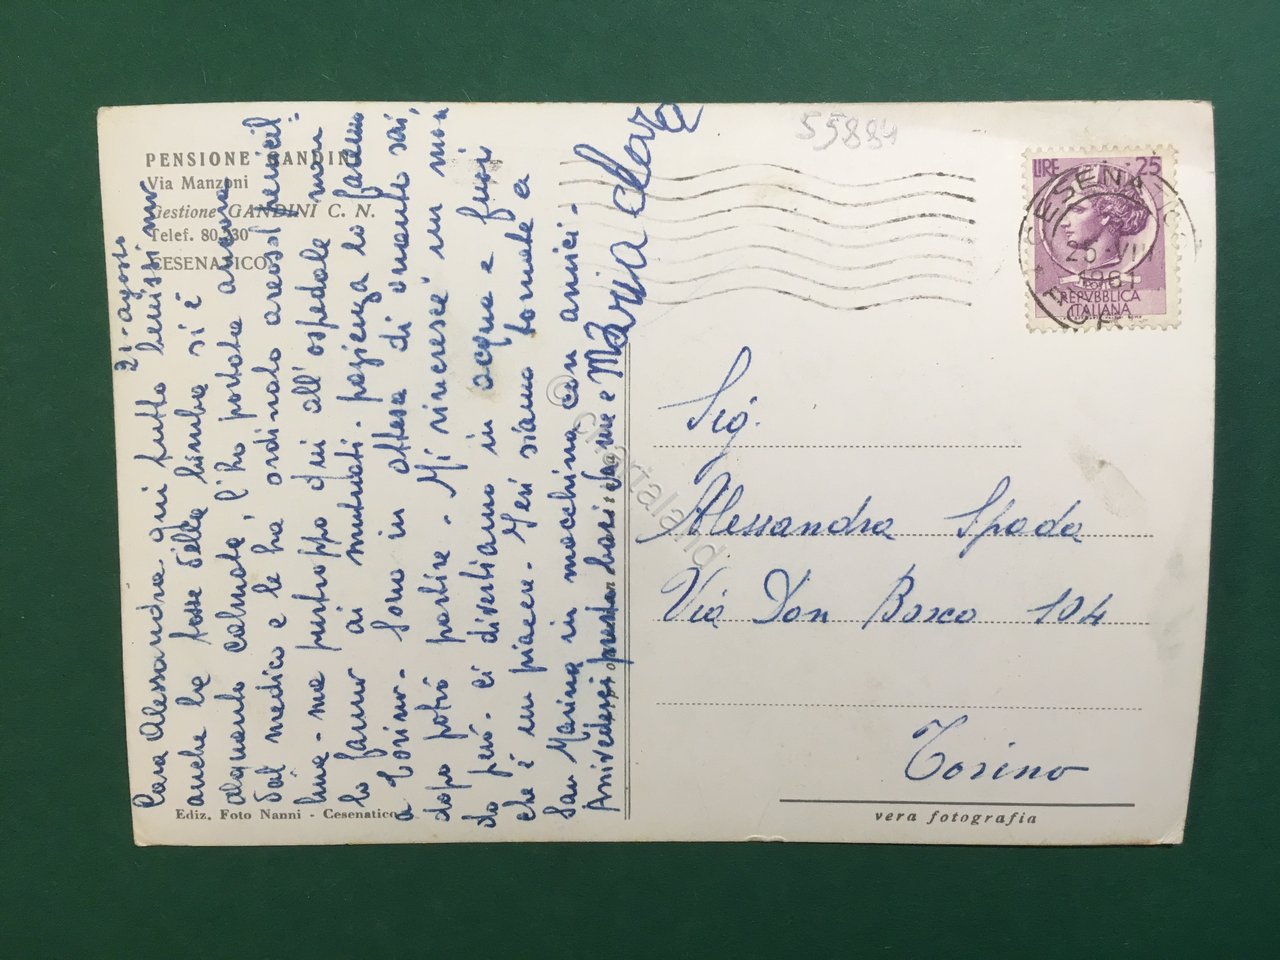 55884
PENSIONE GANDINI
Via Manzoni
Gestione GANDINI C. N.
Telef. 80.230
CESENATICO
21-agosto
Cara Alessandra qui tutto benissimo
anche la tosse della bimba si è
alquanto calmata, l'ho portata ancora
dal medico e le ha ordinato areosol penicil=
lina - ma purtroppo qui all'ospedale non
lo fanno ai mutuati - pazienza lo faremo
a Torino - Sono in attesa di quanto sai,
dopo potrò partire - Mi rincresce un mon
do però - ci divertiamo in acqua e fuori
che è un piacere - Ieri siamo tornate a
San Marino in macchina con amici -
Arrivederci presto baci da me e Maria Clara
Ediz. Foto Nanni - Cesenatico
LIRE 25
REPVBBLICA
ITALIANA
CESENA
1961
Sig.
Alessandra Spada
Via Don Bosco 104
Torino
vera fotografia
© chartaland